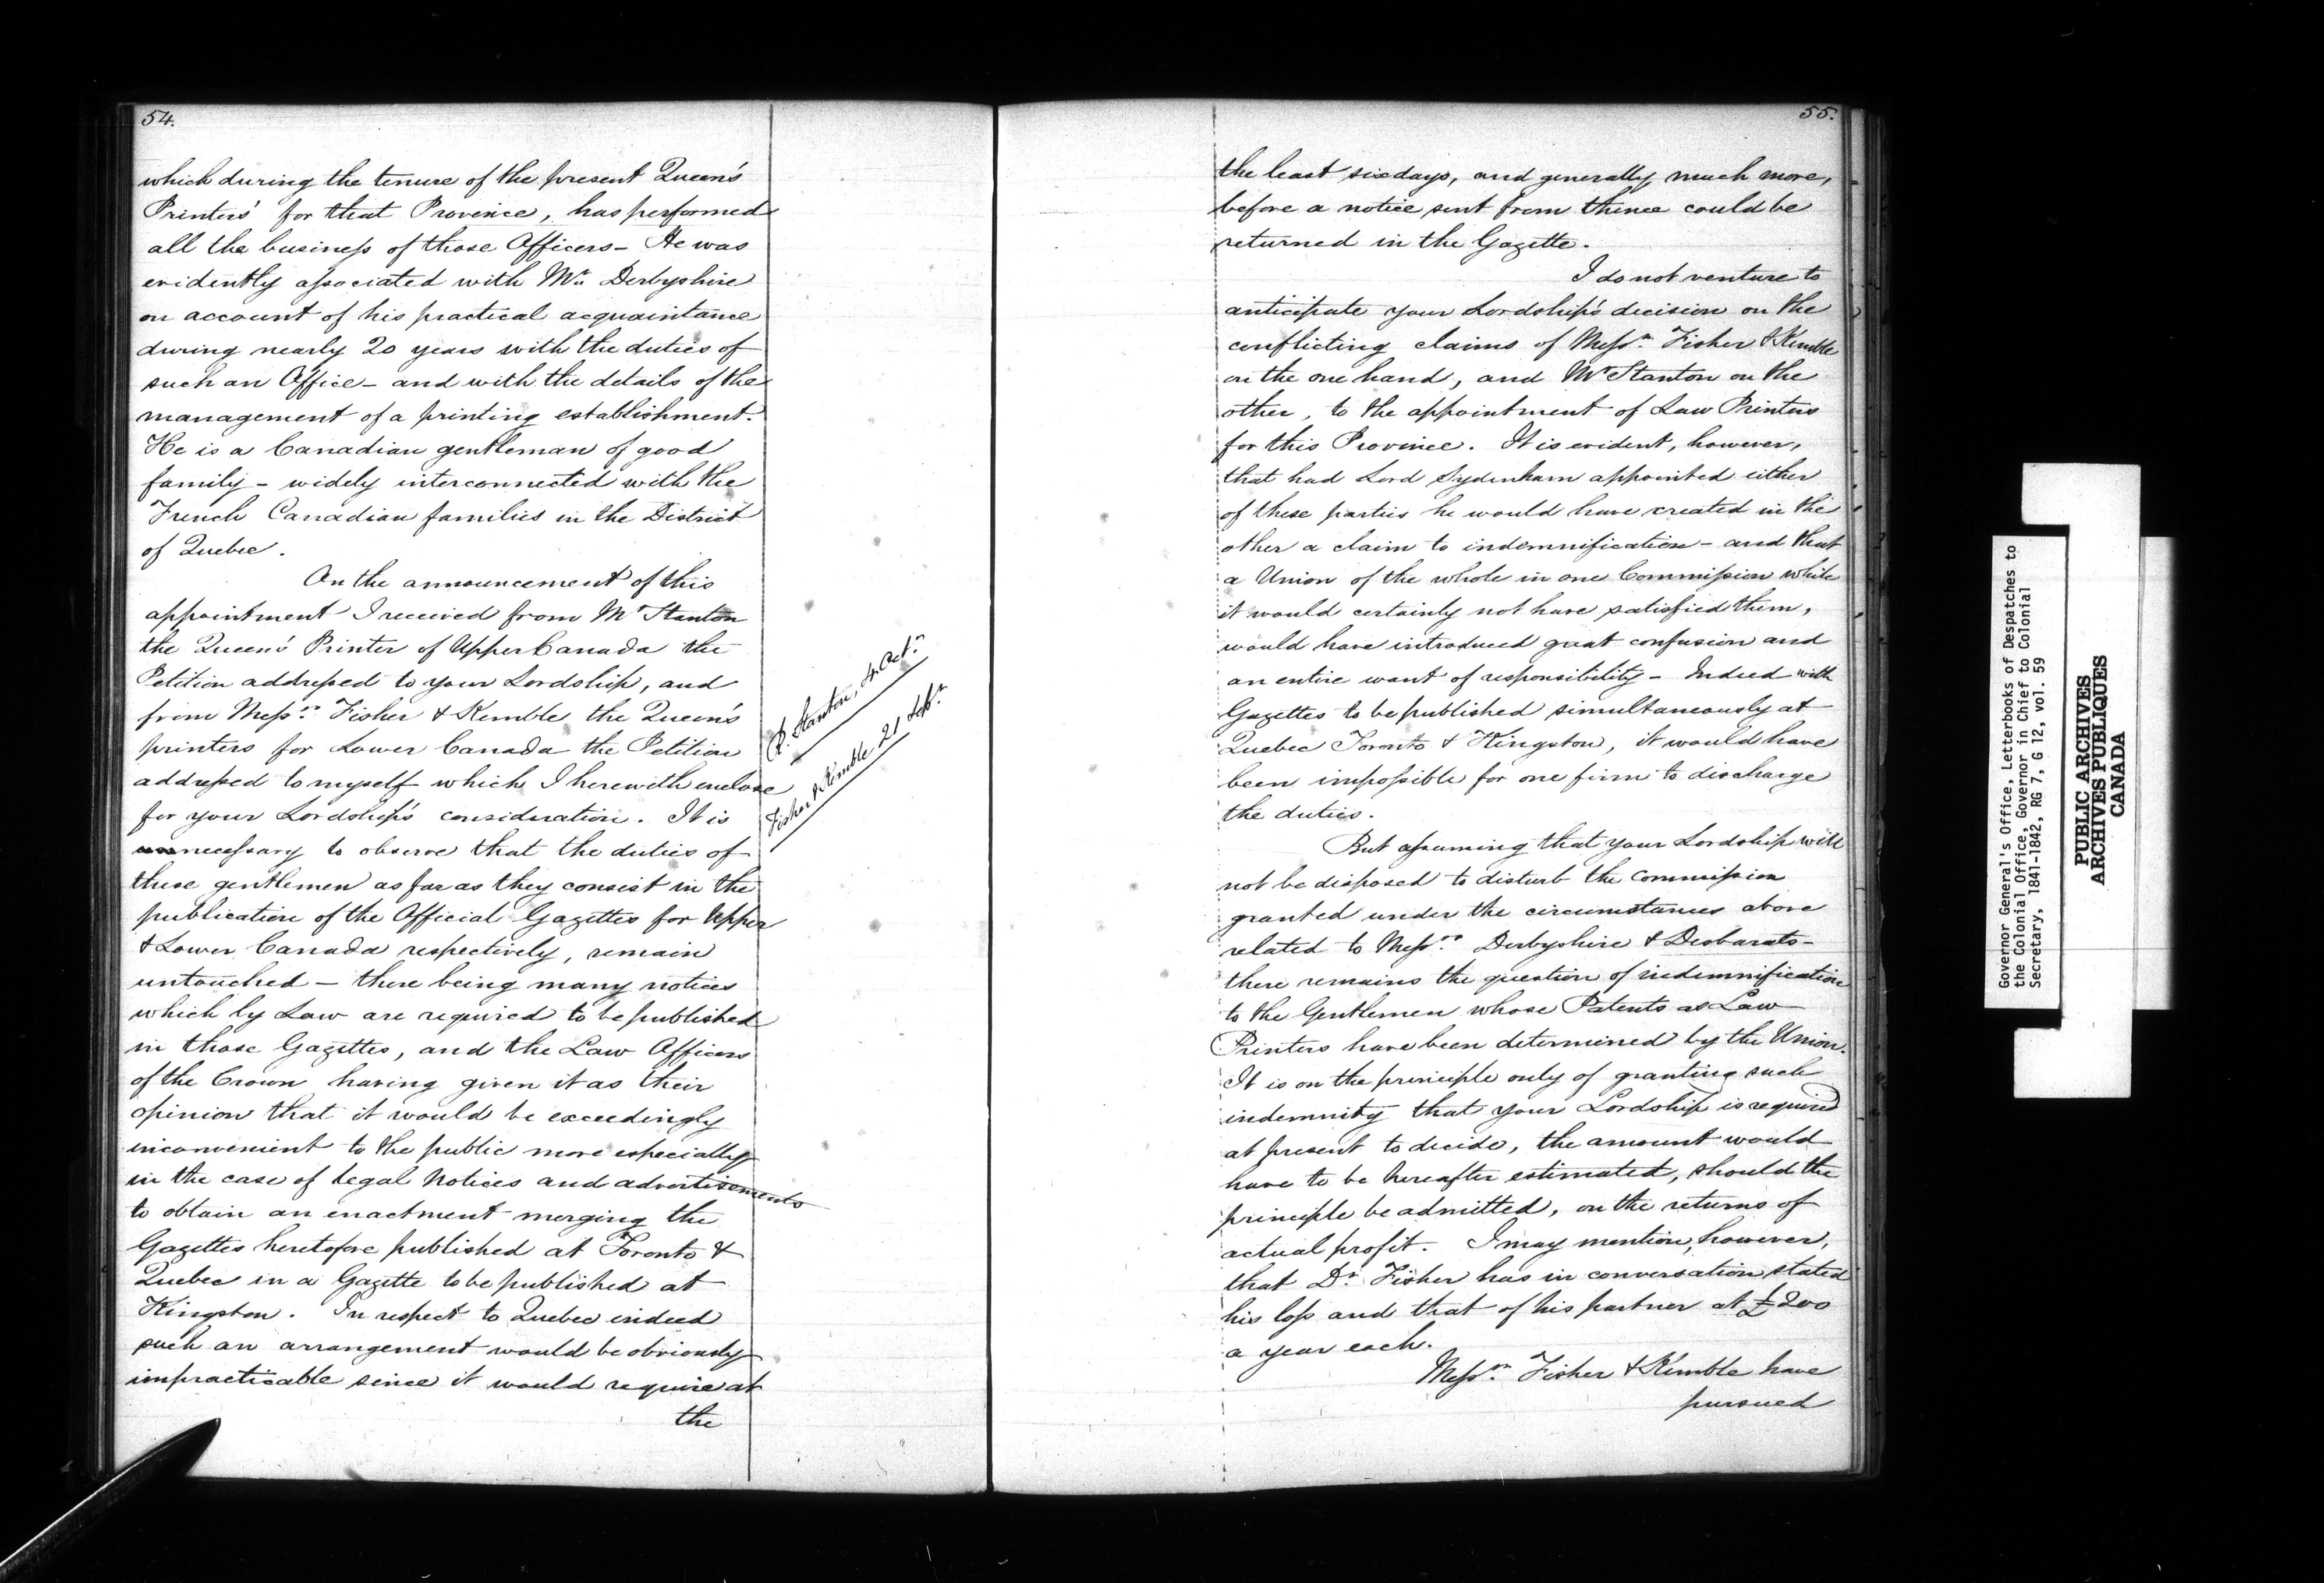 54.
which during the tenure of the present Queen's
Printers' for that Province, has performed
all the business of those Officers - He was
evidently associated with Mr. Derbyshire
on account of his practical acquaintance
during nearly 20 years with the duties of
such an Office - and with the details of the
management of a printing establishment.
He is a Canadian gentleman of good
family - widely interconnected with the
French Canadian families in the District
of Quebec.
On the announcement of this
appointment I received from Mr Stanton
the Queen's Printer of Upper Canada the
Petition addressed to your Lordship, and
from Messrs. Fisher & Kemble the Queen's
printers for Lower Canada the Petition
addressed to myself which I herewith enclose
for your Lordship's consideration. It is
necessary to observe that the duties of
these gentlemen as far as they consist in the
publication of the Official Gazettes for Upper
& Lower Canada respectively, remain
untouched - there being many notices
which by Law are required to be published
in those Gazettes, and the Law Officers
of the Crown having given it as their
opinion that it would be exceedingly
inconvenient to the public more especially
in the case of legal Notices and advertisements
to obtain an enactment merging the
Gazettes heretofore published at Toronto &
Quebec in a Gazette to be published at
Kingston. In respect to Quebec indeed
such an arrangement would be obviously
impracticable since it would require at
the
R. Stanton, 4 Octr.
Fisher & Kemble 21 Sepr.
55.
the least six days, and generally much more,
before a notice sent from thence could be
returned in the Gazette.
I do not venture to
anticipate your Lordship's decision on the
conflicting claims of Messrs. Fisher & Kemble
on the one hand, and Mr Stanton on the
other, to the appointment of Law Printers
for this Province. It is evident, however,
that had Lord Sydenham appointed either
of these parties he would have created in the
other a claim to indemnification - and that
a Union of the whole in one Commission while
it would certainly not have satisfied them,
would have introduced great confusion and
an entire want of responsibility - Indeed with
Gazettes to be published simultaneously at
Quebec Toronto & Kingston, it would have
been impossible for one firm to discharge
the duties.
But assuming that your Lordship will
not be disposed to disturb the Commission
granted under the circumstances above
related to Messrs. Derbyshire & Desbarats -
there remains the question of indemnification
to the Gentlemen whose Patents as Law
Printers have been determined by the Union.
It is on the principle only of granting such
indemnity that your Lordship is required
at present to decide, the amount would
have to be hereafter estimated, should the
principle be admitted, on the returns of
actual profit. I may mention, however,
that Dr. Fisher has in conversation stated
his loss and that of his partner at £200
a year each.
Messrs. Fisher & Kemble have
pursued
Governor General's Office, Letterbooks of Despatches to
the Colonial Office, Governor in Chief to Colonial
Secretary, 1841-1842, RG 7, G 12, vol. 59
PUBLIC ARCHIVES
ARCHIVES PUBLIQUES
CANADA